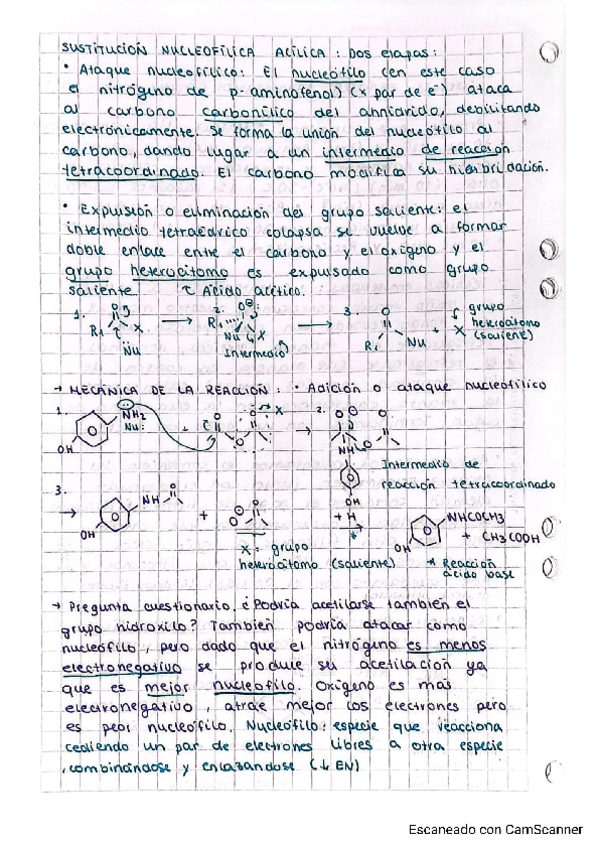 SUSTITUCIÓN NUCLEOFÍLICA ACÍLICA: DOS etapas:
• Ataque nucleofílico: El nucleófilo (en este caso
el nitrógeno de p-aminofenol) (x par de e⁻) ataca
al carbono carbonílico del anhídrido, debilitando
electrónicamente. Se forma la unión del nucleófilo al
carbono, dando lugar a un intermedio de reacción
tetracoordinado. El carbono modifica su hibridación.
• Expulsión o eliminación del grupo saliente: el
intermedio tetraédrico colapsa se vuelve a formar
doble enlace entre el carbono y el oxígeno y el
grupo heteroátomo es expulsado como grupo
saliente. Ácido acético.
1. O R1 X Nu → 2. O⊖ R1 Nu X Intermedio → 3. O R1 Nu + X grupo
heteroátomo
(saliente)
→ MECÁNICA DE LA REACCIÓN: • Adición o ataque nucleofílico
1. NH2 Nu: OH + O O O X → 2. O O O NH OH
Intermedio de
reacción tetracoordinado
3. → NH O OH + O O + H
X = grupo
heteroátomo (saliente)
OH NHCOCH3 + CH3COOH
* Reacción
ácido base
→ Pregunta cuestionario. ¿Podría acetilarse también el
grupo hidroxilo? También podría atacar como
nucleófilo, pero dado que el nitrógeno es menos
electronegativo se produce su acetilación ya
que es mejor nucleofilo. Oxígeno es más
electronegativo, atrae mejor los electrones pero
es peor nucleófilo. Nucleófilo: especie que reacciona
cediendo un par de electrones libres a otra especie
, combinándose y enlazandose (↓ EN)
Escaneado con CamScanner